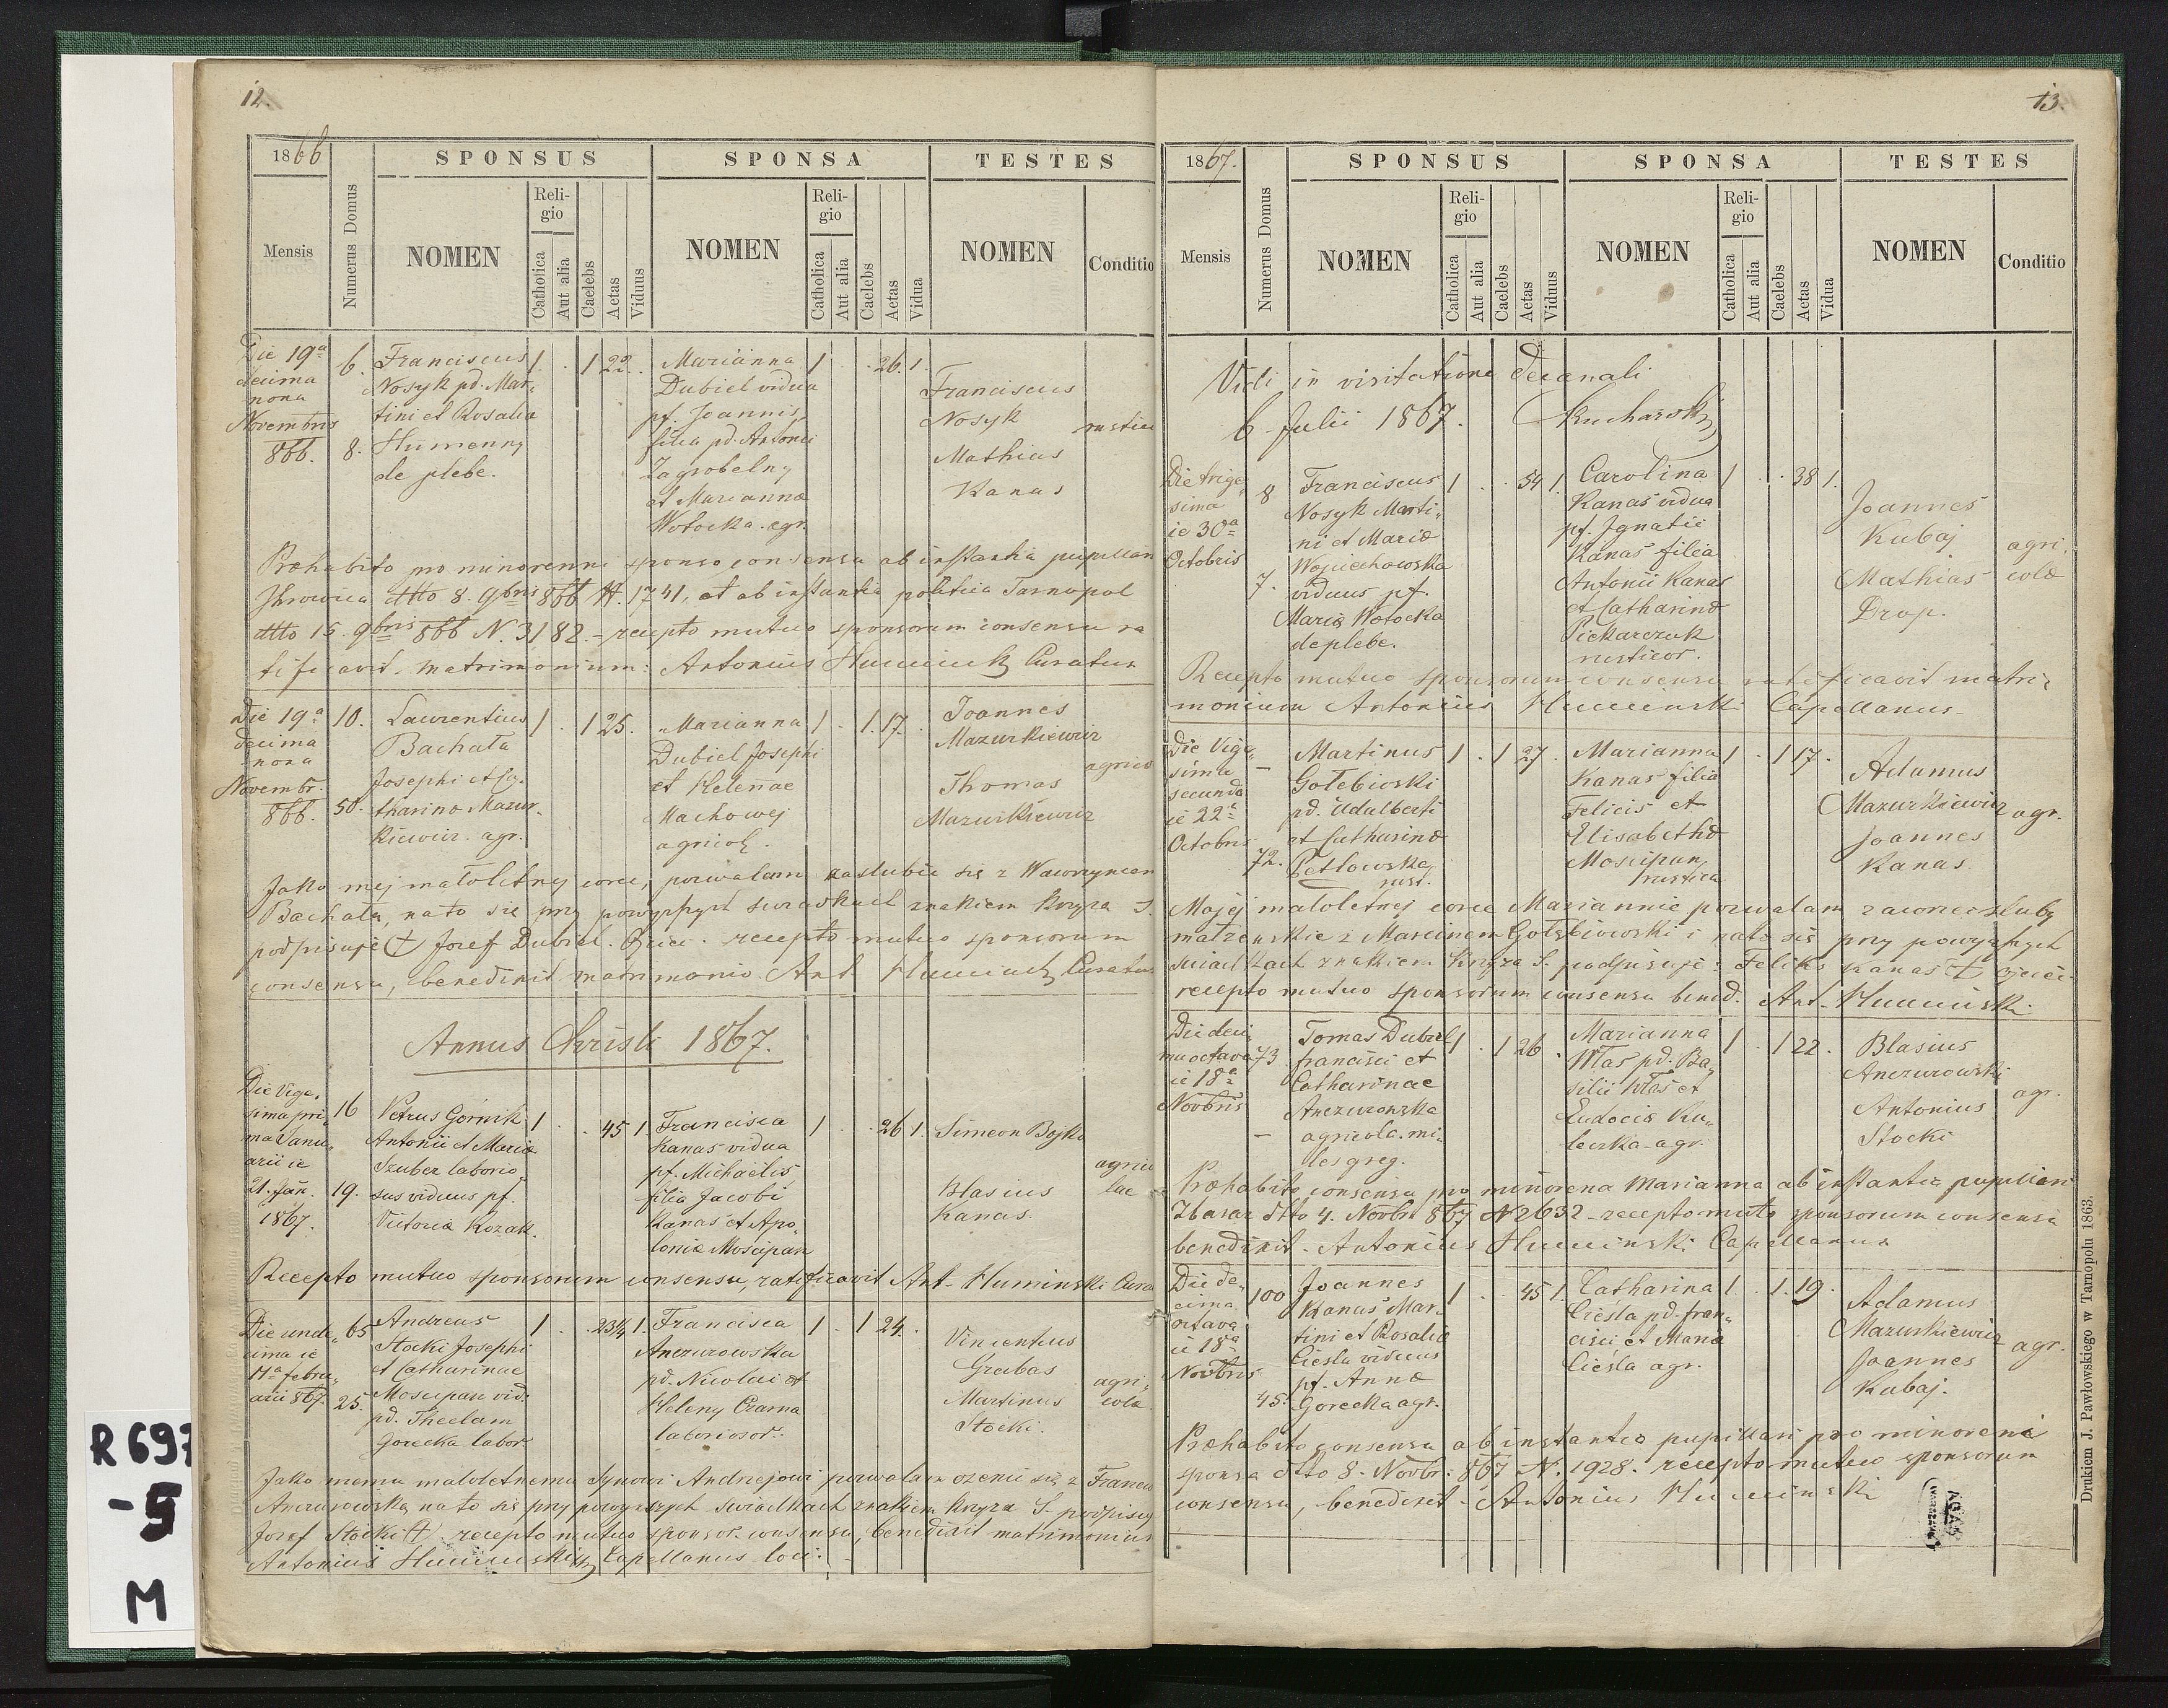 12.
1866
SPONSUS
SPONSA
TESTES
Mensis
Numerus Domus
NOMEN
Religio
Catholica
Aut alia
Caelebs
Aetas
Viduus
NOMEN
Religio
Catholica
Aut alia
Caelebs
Aetas
Vidua
NOMEN
Conditio
Die 19a
decima
nona
Novembris
866.
6.
8.
Franciscus
Nosyk pd. Mar-
tini et Rosalia
Humenny
de plebe.
1 . 1 22 .
Marianna
Dubiel vidua
pf. Joannis,
filia pd. Antonii
Zagrobelny
et Marianna
Wołocka. agr.
1 . . 26. 1.
Franciscus
Nosyk
Mathias
Kanas
rustici
Præhabito pro minorenni sponso consensu ab instantia pupillari
Ihrowica dtto 8. 9bris 866 N. 1741, et ab instantia politica Tarnopol
dtto 15. 9bris 866 N. 3182. - recepto mutuo sponsorum consensu ra
tificavit matrimonium: Antonius Curatus
Die 19a
decima
nona
Novembr.
866.
10.
50.
Laurentius
Bachata
Josephi et Ca-
tharina Mazur-
kiewicz. agr.
1 . 1 25.
Marianna
Dubiel Josephi
et Helenae
Machowej
agricol.
1 . 1. 17. .
Joannes
Mazurkiewicz
Thomas
Mazurkiewicz
agrico
Jako mej małoletnej corce, pozwalam zaslubic się z Wawrzyncem
Bachata, na to się przy powyższych swiadkach znakiem krzyża S.
podpisuje † Jozef Dubiel. Ojciec. recepto mutuo sponsorum
consensu, benedixit matrimonio. Ant. Curatus
Annus Christi 1867.
Die Vige-
sima pri-
ma Janu-
arii ie
21. Jan.
1867.
16
19.
Petrus Górnik
Antonii et Maria
Szuber laborio-
sus viduus pf.
Victoria Kozak.
1 . . 45 1.
Francisca
Kanas vidua
pf. Michaelis
filia Jacobi
Kanas et Apo-
lonia Moscipan
1 . . 26 1.
Simeon Bojko
Blasius
Kanas.
agrico
lae
Recepto mutuo sponsorum consensu, ratificavit Ant. Huminski Cura
Die unde-
cima ie
11a febru-
arii 867.
65
25.
Andreas
Stocki Josephi
et Catharinae
Moscipan vid.
pd. Theclam
Gorecka labor.
1 . . 23 1/4 1.
Francisca
Anczurowska
pd. Nicolai et
Heleny Czarna
laboriosor.
1 . 1 24. .
Vincentius
Grabas
Martinus
Stocki.
agri-
cola.
Jako memu małoletnemu Synowi Andrzejowi pozwalam ozenić się z Francis
Anczurowską na to się przy powyższych swiadkach znakiem krzyża S. podpisuję
Jozef Stocki †. recepto mutuo sponsor. consensu, benedixit matrimonium
Antonius Huminski Capellanus loci.
13.
1867.
SPONSUS
SPONSA
TESTES
Mensis
Numerus Domus
NOMEN
Religio
Catholica
Aut alia
Caelebs
Aetas
Viduus
NOMEN
Religio
Catholica
Aut alia
Caelebs
Aetas
Vidua
NOMEN
Conditio
Vidi in visitatione decanali
6 Julii 1867. Kucharski
Die trige-
sima
ie 30a
Octobris
8
7.
Franciscus
Nosyk Marti-
ni et Maria
Wojciechowska
viduus pf.
Maria Wołocka
de plebe.
1 . . 54 1.
Carolina
Kanas vidua
pf. Ignatii
Kanas filia
Antonii Kanas
et Catharina
Piekarczuk
rusticor.
1 . . 38 1.
Joannes
Kubaj
Mathias
Drop.
agri-
cola
Recepto mutuo sponsorum consensu ratificavit matri-
monium Antonius Huminski Capellanus
Die Vige-
sima
secunda
ie 22a
Octobris
-
72.
Martinus
Gołebioski
pd. Adalberti
et Catharina
Petlowska
rust.
1 . 1 27.
Marianna
Kanas filia
Felicis et
Elisabetha
Moscipan
rustica
1 . 1 17. .
Adamus
Mazurkiewicz
Joannes
Kanas.
agr.
Mojej małoletnej corce Mariannie pozwalam zawrzeć sluby
małzenskie z Marcinem Gołębiowski i na to się przy powyższych
swiadkach znakiem Krzyża S. podpisuje: Feliks Kanas † ojciec
recepto mutuo sponsorum consensu bened. Ant. Huminski.
Die deci-
ma octava
ie 18a
Novbris
73
-
Tomas Dubiel
francisci et
Catharinae
Anczurowska
agricola. mi-
les greg.
1 . 1 26 .
Marianna
Włas pd. Ba-
silii Włas et
Eudocia Ku-
leczka - agr.
1 . 1 22. .
Blasius
Anczurowski
Antonius
Stocki
agr.
Præhabito consensu pro minorena Marianna ab instantia pupillari
Zbaraz dtto 4. Novbr. 867 N 2632 - recepto mutuo sponsorum consensu
benedixit. Antonius Huminski Capellanus
Die de-
cima
octava
ie 18a
Novbris
100
45.
Joannes
Kanas Mar-
tini et Rosalia
Ciesla viduus
pf. Anna
Gorecka agr.
1 . . 45 1.
Catharina
Cieśla pd. fran-
cisci et Maria
Ciesla agr.
1 . 1. 19. .
Adamus
Mazurkiewicz
Joannes
Kubaj.
agr.
Præhabito consensu ab instantia pupillari pro minorena
sponsa dtto 8. Novbr. 867 N. 1928. recepto mutuo sponsorum
consensu, benedixit - Antonius Huminski
AGAD
WARSZAWA
Drukiem J. Pawłowskiego w Tarnopolu 1863.
R 697
-5
M